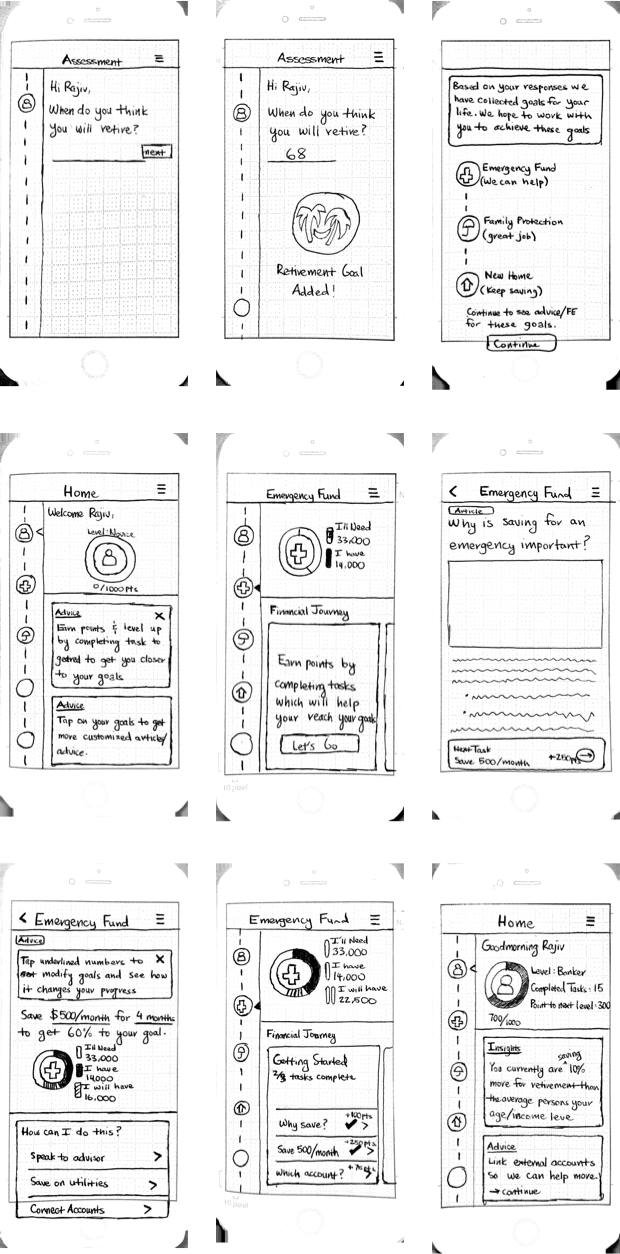 Assessment
Hi Rajiv,
When do you think
you will retire?
next
Assessment
Hi Rajiv,
When do you think
you will retire?
68
Retirement Goal
Added!
Based on your responses we
have collected goals for your
life. We hope to work with
you to achieve these goals
Emergency Fund
(We can help)
Family Protection
(great job)
New Home
(Keep saving)
Continue to see advice/FE
for these goals.
Continue
Home
Welcome Rajiv,
Level: Novice
0/1000 Pts
Advice
X
Earn points & level up
by completing task to
to get you closer
to your goals
Advice
Tap on your goals to get
more customized article/
advice.
Emergency Fund
I'll Need
33,000
I have
14,000
Financial Journey
Earn points by
completing tasks
which will help
your reach your goals
Let's Go
10 pixel
< Emergency Fund
Article
Why is saving for an
emergency important?
Next Task
Save 500/month
+250pts
< Emergency Fund
Advice
Tap underlined numbers to X
modify goals and see how
it changes your progress
Save $500/month for 4 months
to get 60% to your goal.
I'll Need
33,000
I have
14,000
I will have
16,000
How can I do this?
Speak to advisor >
Save on utilities >
Connect Accounts >
Emergency Fund
I'll Need
33,000
I have
14,000
I will have
22,500
Financial Journey
Getting Started
2/3 tasks complete
+100pts
Why save? >
+250pts
Save 500/month >
Which account? >
10 pixel
Home
Goodmorning Rajiv
Level: Banker
Completed Tasks: 15
Point to next level: 300
700/1000
Insights
saving
You currently are 10%
more for retirement than
the average persons your
age/income leve
Advice
Link external accounts
so we can help more.
→ continue